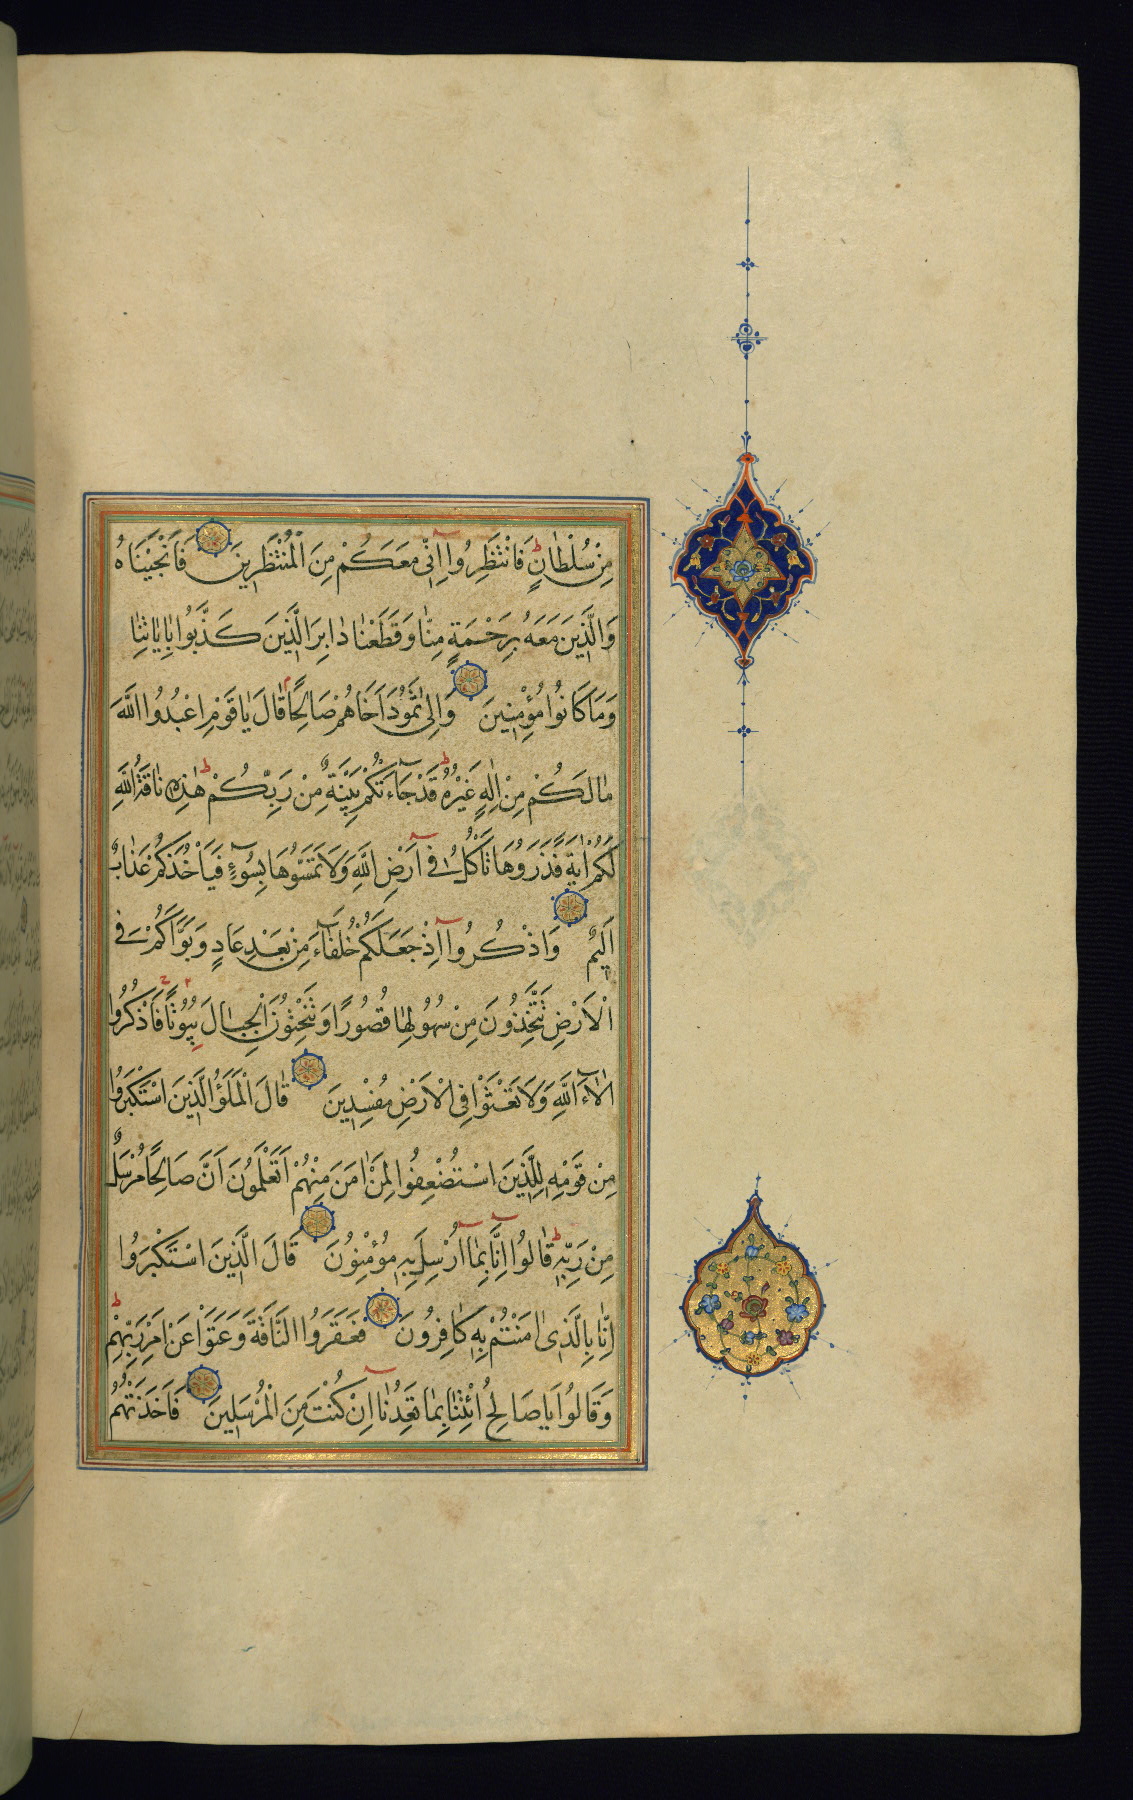 مِنْ سُلْطَانٍ فَانْتَظِرُوا اِنّٖى مَعَكُمْ مِنَ الْمُنْتَظِرٖينَ فَاَنْجَيْنَاهُ
وَالَّذٖينَ مَعَهُ بِرَحْمَةٍ مِنَّا وَقَطَعْنَا دَابِرَ الَّذٖينَ كَذَّبُوا بِاٰيَاتِنَا
وَمَا كَانُوا مُؤْمِنٖينَ وَاِلٰى ثَمُودَ اَخَاهُمْ صَالِحًا قَالَ يَا قَوْمِ اعْبُدُوا اللّٰهَ
مَا لَكُمْ مِنْ اِلٰهٍ غَيْرُهُ قَدْ جَاءَتْكُمْ بَيِّنَةٌ مِنْ رَبِّكُمْ هٰذِهٖ نَاقَةُ اللّٰهِ
لَكُمْ اٰيَةً فَذَرُوهَا تَأْكُلْ فٖى اَرْضِ اللّٰهِ وَلَا تَمَسُّوهَا بِسُوءٍ فَيَأْخُذَكُمْ عَذَابٌ
اَلٖيمٌ وَاذْكُرُوا اِذْ جَعَلَكُمْ خُلَفَاءَ مِنْ بَعْدِ عَادٍ وَبَوَّاَكُمْ فِى
الْاَرْضِ تَتَّخِذُونَ مِنْ سُهُولِهَا قُصُورًا وَتَنْحِتُونَ الْجِبَالَ بُيُوتًا فَاذْكُرُوا
اٰلَاءَ اللّٰهِ وَلَا تَعْثَوْا فِى الْاَرْضِ مُفْسِدٖينَ قَالَ الْمَلَاُ الَّذٖينَ اسْتَكْبَرُوا
مِنْ قَوْمِهٖ لِلَّذٖينَ اسْتُضْعِفُوا لِمَنْ اٰمَنَ مِنْهُمْ اَتَعْلَمُونَ اَنَّ صَالِحًا مُرْسَلٌ
مِنْ رَبِّهٖ قَالُوا اِنَّا بِمَا اُرْسِلَ بِهٖ مُؤْمِنُونَ قَالَ الَّذٖينَ اسْتَكْبَرُوا
اِنَّا بِالَّذٖى اٰمَنْتُمْ بِهٖ كَافِرُونَ فَعَقَرُوا النَّاقَةَ وَعَتَوْا عَنْ اَمْرِ رَبِّهِمْ
وَقَالُوا يَا صَالِحُ ائْتِنَا بِمَا تَعِدُنَا اِنْ كُنْتَ مِنَ الْمُرْسَلٖينَ فَاَخَذَتْهُمُ